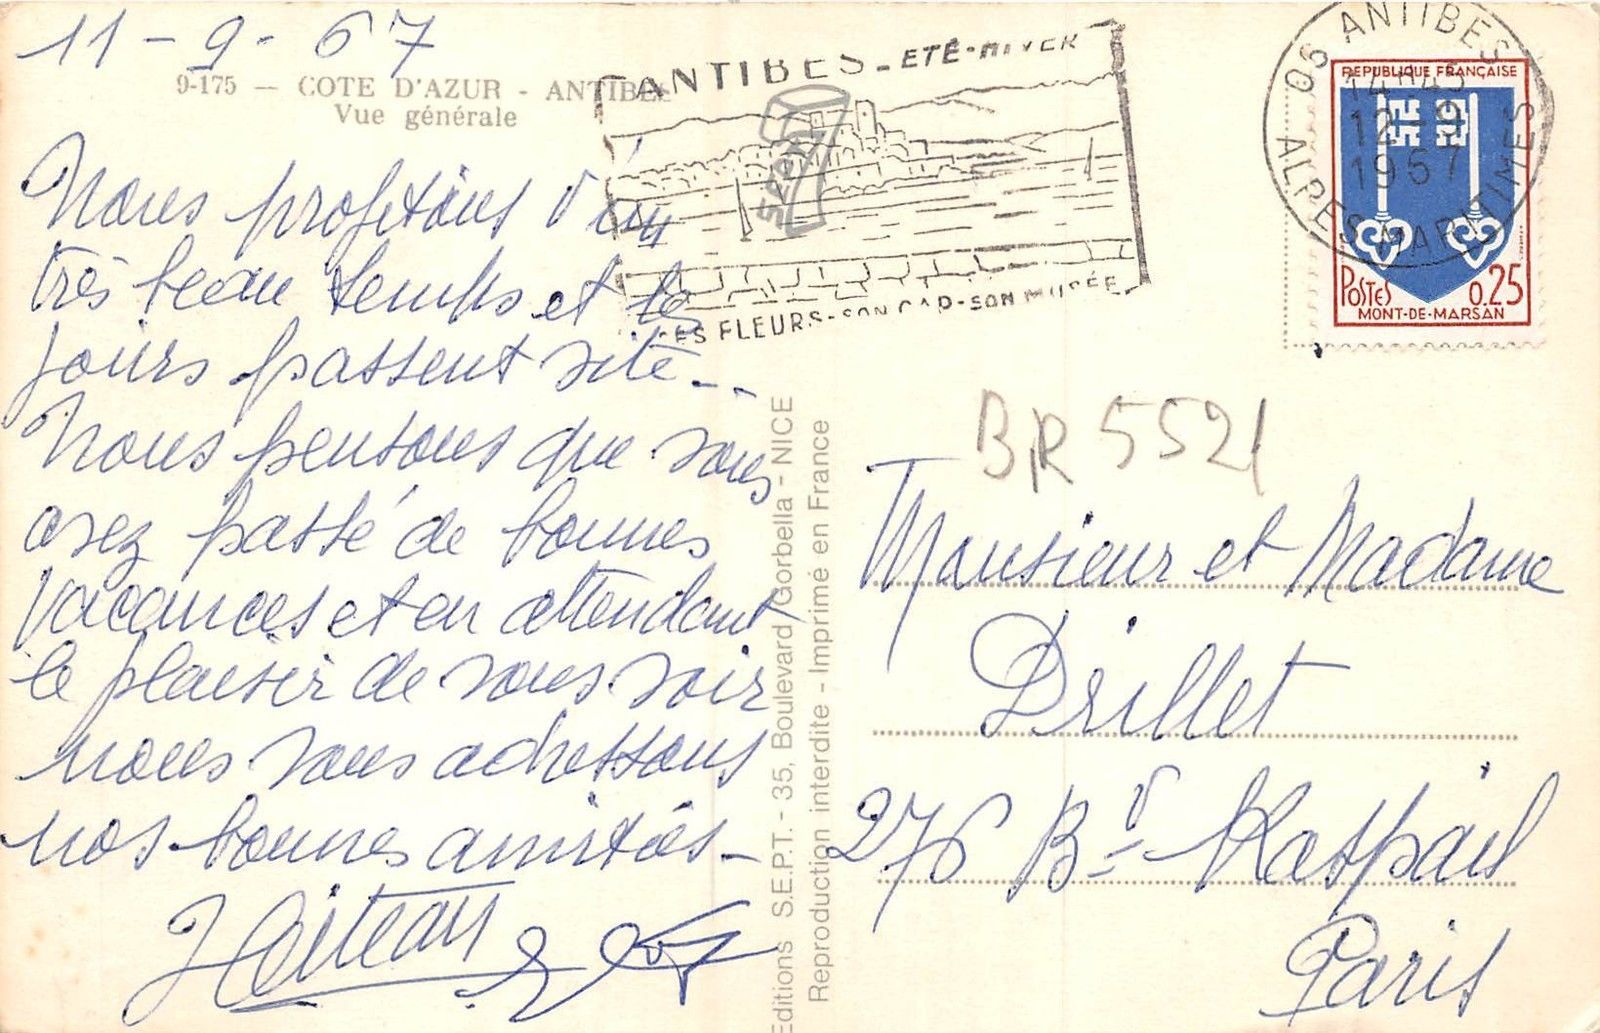 11-9-67
9-175 — COTE D'AZUR - ANTIBES
Vue générale
Nous profitons d'un
très beau temps et les
jours passent vite...
Nous pensons que vous
avez passé de bonnes
vacances et en attendant
le plaisir de vous voir
nous vous adressons
nos bonnes amitiés -
ANTIBES - ÉTÉ-HIVER
SES FLEURS-SON CAP-SON MUSÉE
SEPT
06 ANTIBES
ALPES MARITIMES
14H45
12-9
1967
REPUBLIQUE FRANÇAISE
POSTES 0,25
MONT-DE-MARSAN
Editions S.E.P.T. - 35, Boulevard Gorbella - NICE
Reproduction interdite - Imprimé en France
BR 5521
Monsieur et Madame
Drillet
276 Bd Raspail
Paris